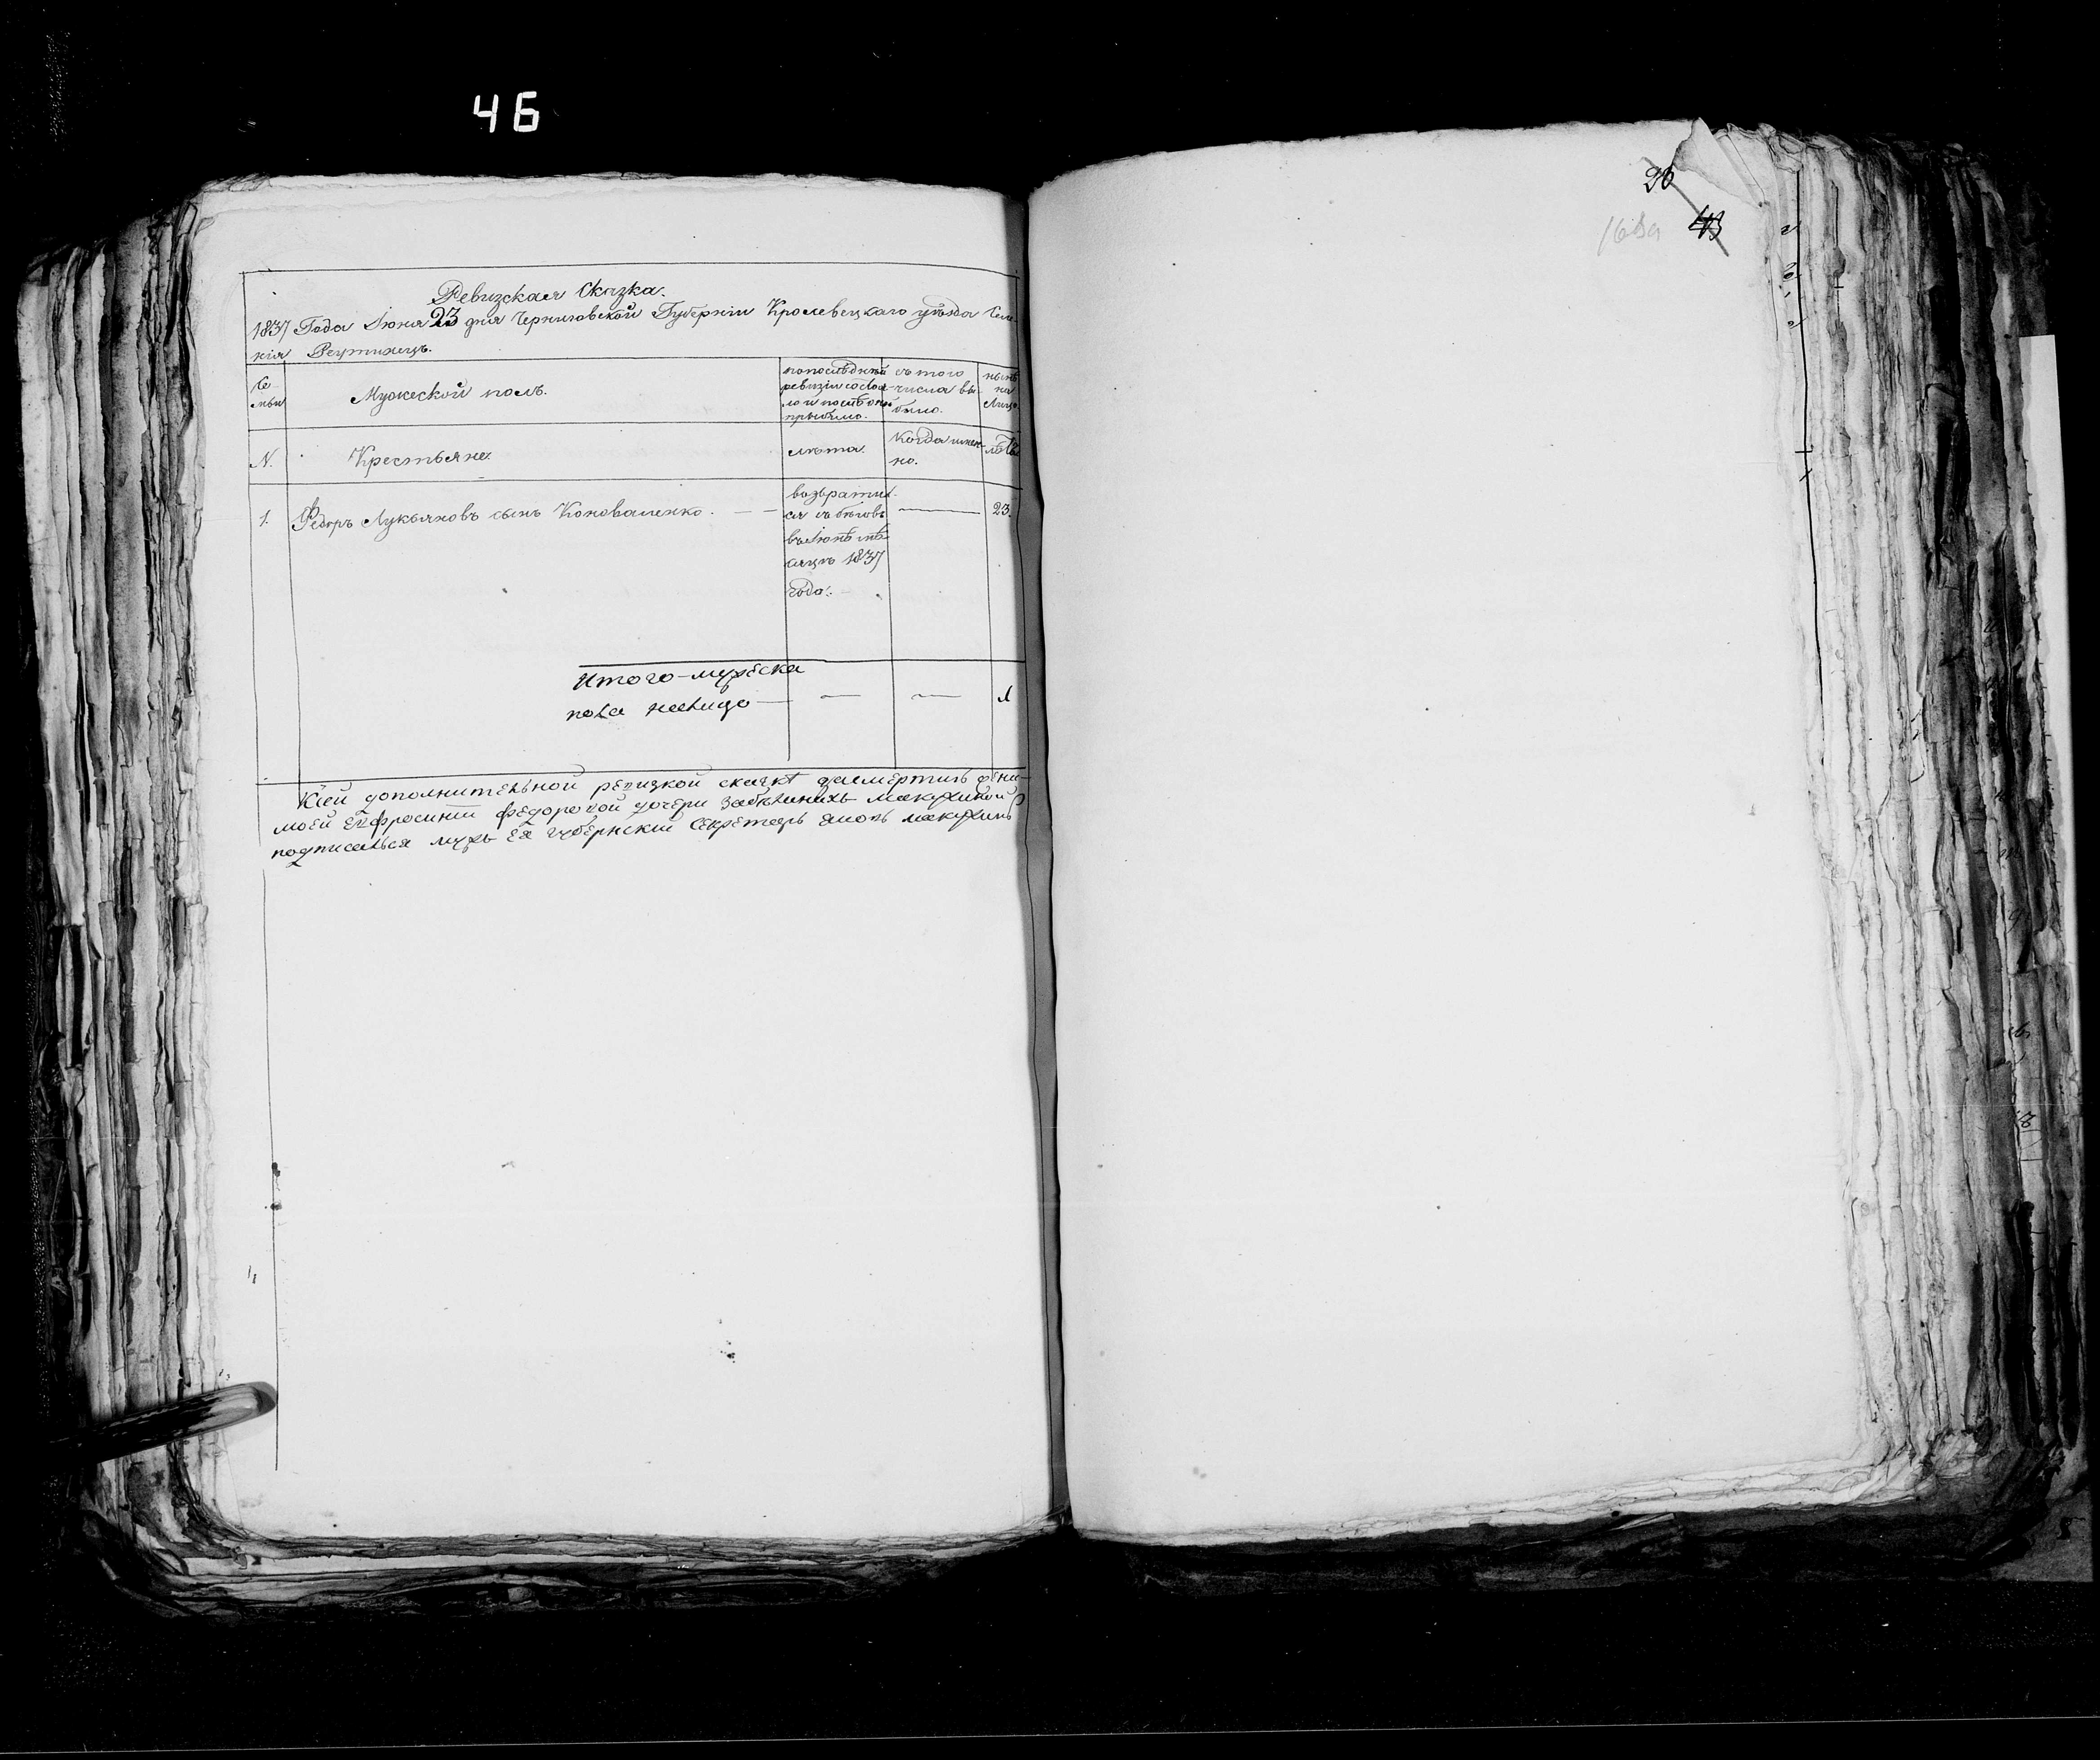 46
Ревизская Сказка.
1837 Года Июня 23 дня Черниговской Губерніи Кролевецкаго уѣзда Селе-
нія Реутинецъ.
Се-
мьи
Мужеской полъ.
по последней
ревизіи состоя-
ло и после оной
прибыло.
съ того
числа вы-
было.
нынѣ
на
Лицо.
N.
Крестьяне
лѣта.
Когда имен-
но.
лѣта
1.
Федоръ Лукьяновъ сынъ Коноваленко.
возвратил-
ся съ бѣговъ
въ Іюнѣ мѣ-
сяцѣ 1837
года.
23.
Итого мужеска
пола налицо
1
Ксей дополнительной ревизкой сказкѣ
моей Евфросиніи Федоровой дочери Макухиной
подписалься мужъ Ея губернский Секретарь Макухинъ
26
43